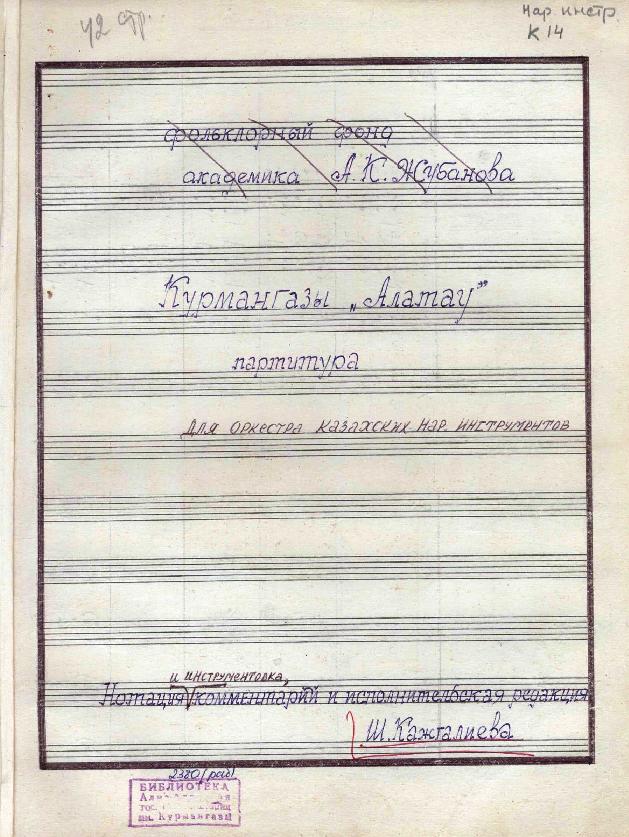 42 стр.
Нар. инстр.
К 14
фольклорный фонд
академика А. К. Жубанова
Курмангазы „Алатау”
партитура
ДЛЯ ОРКЕСТРА КАЗАХСКИХ НАР. ИНСТРУМЕНТОВ
и инструментовка,
Нотация комментарий и исполнительская редакция
Ш. Кажгалиева
БИБЛИОТЕКА
гос.
им. Курмангазы